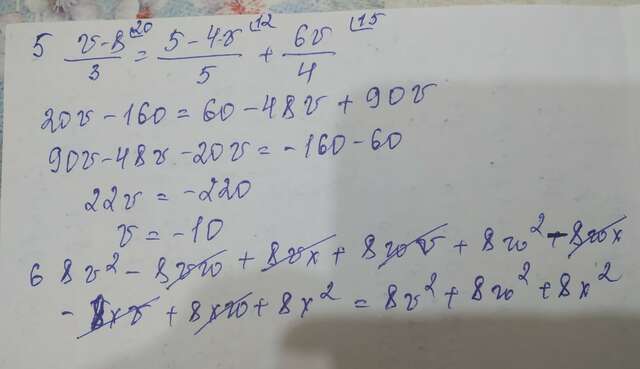 5 (v-8)/3 ⌊20 = (5-4v)/5 ⌊12 + 6v/4 ⌊15
20v - 160 = 60 - 48v + 90v
90v - 48v - 20v = -160 - 60
22v = -220
v = -10
6 8v² - 8vw + 8vx + 8wv + 8w² - 8wx
- 8xv + 8xw + 8x² = 8v² + 8w² + 8x²